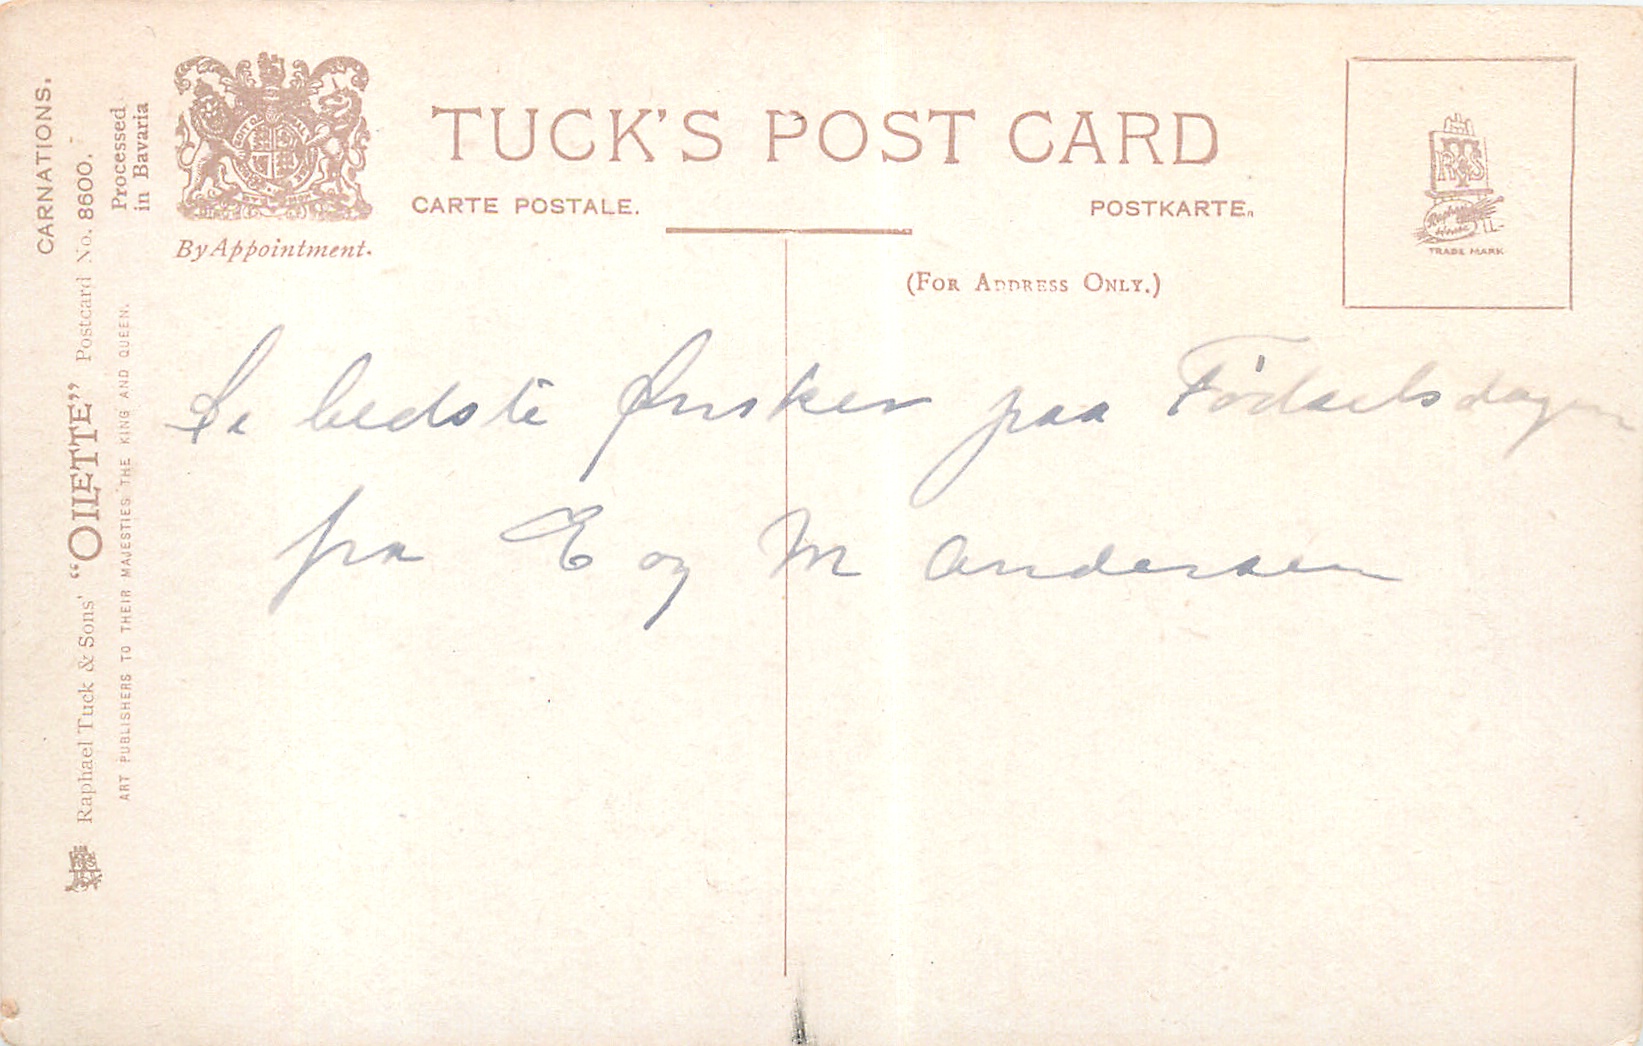 CARNATIONS.
Raphael Tuck & Sons' "OILETTE" Postcard No. 8600.
ART PUBLISHERS TO THEIR MAJESTIES THE KING AND QUEEN.
Processed
in Bavaria
By Appointment.
TUCK'S POST CARD
CARTE POSTALE.
POSTKARTE.
(FOR ADDRESS ONLY.)
RTS
Raphael
House
TRADE MARK
De bedste Ønsker paa Fødselsdagen
fra E og M Andersen